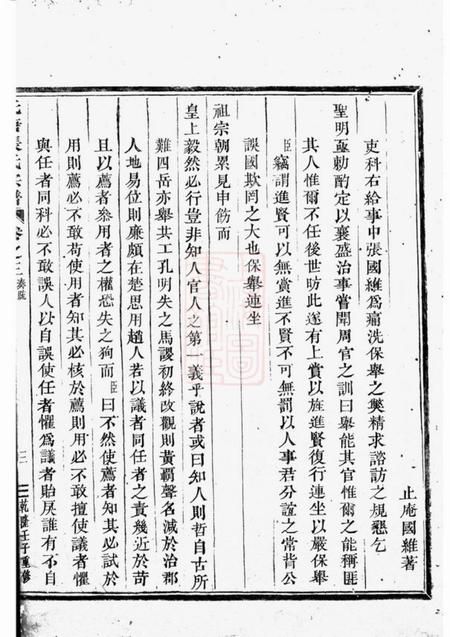 止庵國維著
吏科右給事中張國維爲痛洗保舉之獘精求諮訪之規懇乞
聖明亟勅酌定以襄盛治事嘗聞周官之訓曰舉能其官惟爾之能稱匪
其人惟爾不任後世昉此遂有上賞以旌進賢復行連坐以嚴保舉
臣竊謂進賢可以無賞進不賢不可無罰以人事君分誼之常背公
誤國欺罔之大也保舉連坐
祖宗朝累見申飭而
皇上毅然必行豈非知人官人之第一義乎說者或曰知人則哲自古所
難四岳亦舉共工孔明失之馬謖初終改觀則黃霸聲名減於治郡
人地易位則廉頗在楚思用趙人若以議者同任者之責幾近於苛
且以薦者參用者之權恐失之狥而臣曰不然使薦者知其必試於
用則薦必不敢苟使用者知其必核於薦則用必不敢擅使議者懼
與任者同科必不敢誤人以自誤使任者懼爲議者貽戾誰有不自
卷之三 奏疏
三
乾隆壬子重修